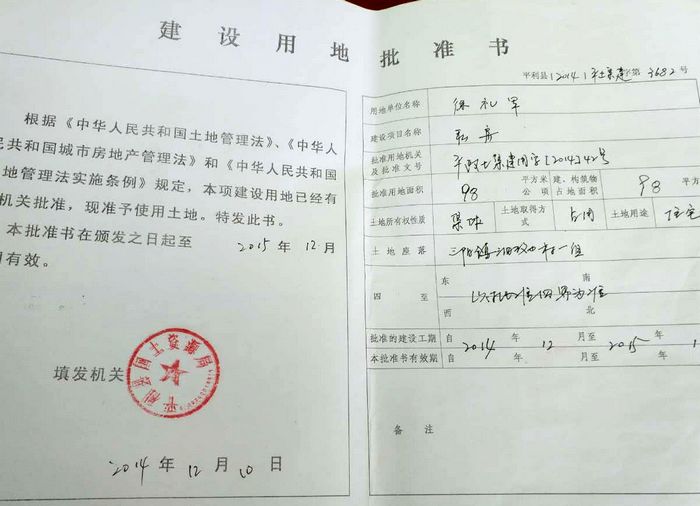 建设用地批准书
根据《中华人民共和国土地管理法》、《中华人
民共和国城市房地产管理法》和《中华人民共和国
地管理法实施条例》规定，本项建设用地已经有
机关批准，现准予使用土地。特发此书。
本批准书在颁发之日起至 2015 年 12 月
有效。
平利县国土资源局
填发机关
2014 年 12 月 10 日
平利县(2014)平土集建字第3682号
用地单位名称 徐礼军
建设项目名称 私房
批准用地机关
及批准文号 平政土集建用字[2014]42号
批准用地面积 98 平方米 公项 建、构筑物 占地面积 98 平方
土地所有权性质 集体 土地取得方式 占用 土地用途 住宅
土地座落 三阳镇 村一组
四至 东 南
为准
西 北
批准的建设工期 自 2014 年 12 月至 2015 年 1
本批准书有效期 自 年 月至 年
备注